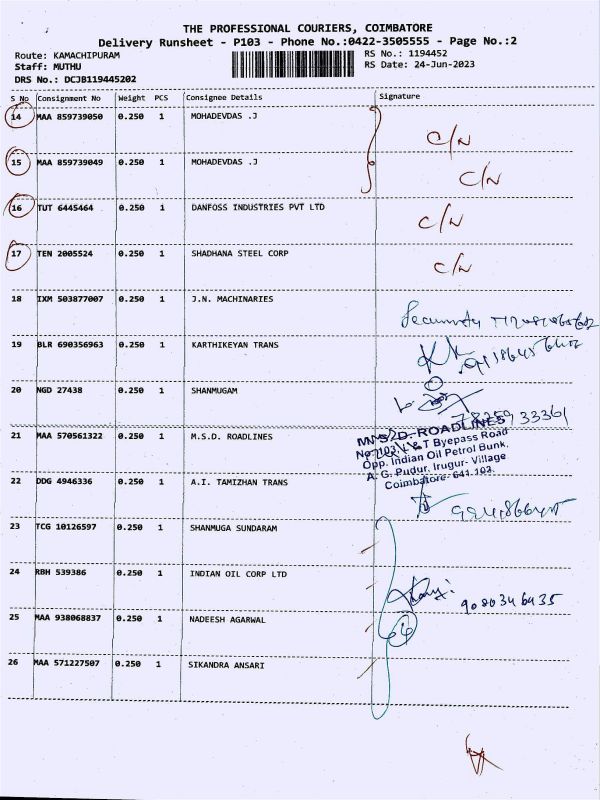 THE PROFESSIONAL COURIERS, COIMBATORE
Delivery Runsheet - P103 - Phone No.:0422-3505555 - Page No.:2
Route: KAMACHIPURAM
RS No.: 1194452
Staff: MUTHU
RS Date: 24-Jun-2023
DRS No.: DCJB119445202
S No Consignment No Weight PCS Consignee Details Signature
14 MAA 859739050 0.250 1 MOHADEVDAS .J C/N
15 MAA 859739049 0.250 1 MOHADEVDAS .J C/N
16 TUT 6445464 0.250 1 DANFOSS INDUSTRIES PVT LTD C/N
17 TEN 2005524 0.250 1 SHADHANA STEEL CORP C/N
18 IXM 503877007 0.250 1 J.N. MACHINARIES
Security
19 BLR 690356963 0.250 1 KARTHIKEYAN TRANS
20 NGD 27438 0.250 1 SHANMUGAM
33361
21 MAA 570561322 0.250 1 M.S.D. ROADLINES
M.S.D. ROADLINES
L & T Byepass Road
Opp. Indian Oil Petrol Bunk,
A. G. Pudur, Irugur- Village
Coimbatore- 641 103.
22 DDG 4946336 0.250 1 A.I. TAMIZHAN TRANS
23 TCG 10126597 0.250 1 SHANMUGA SUNDARAM
24 RBH 539386 0.250 1 INDIAN OIL CORP LTD
9080346435
25 MAA 938068837 0.250 1 NADEESH AGARWAL
26 MAA 571227507 0.250 1 SIKANDRA ANSARI